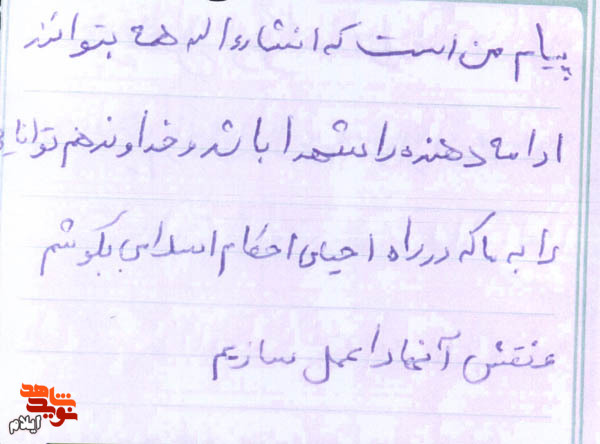 پیام من است که انشاءاله همه بتوانند
ادامه دهنده راه شهدا باشد و خداوند هم توانایی
را به ما که در راه احیای احکام اسلامی بکوشم
نقش آنها را عمل سازیم
نوید شاهد
ایلام